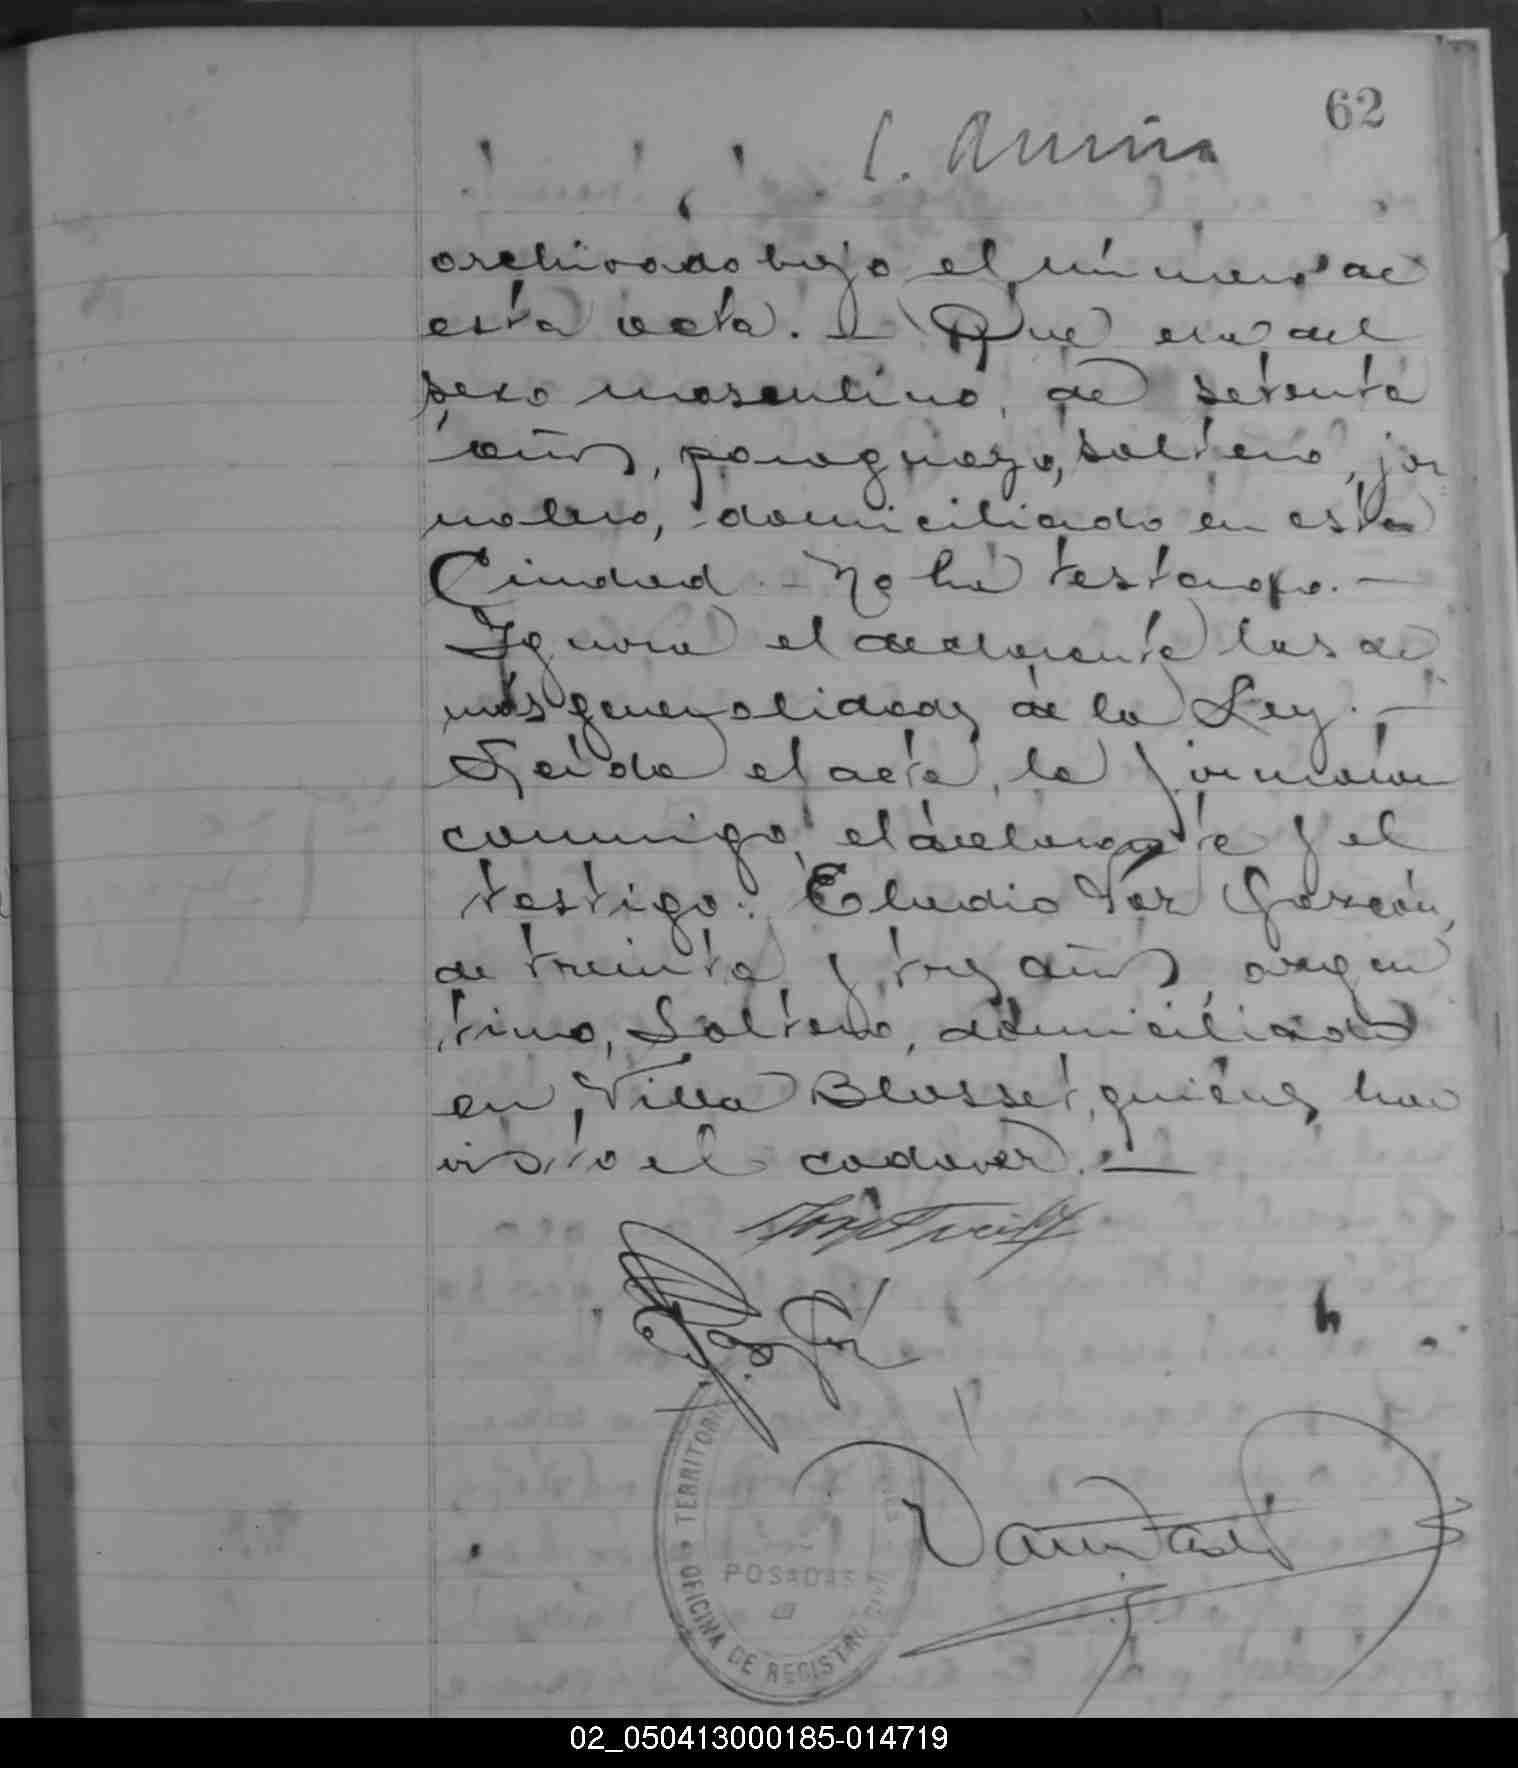 62
archivado bajo el número de
esta acta. — Que era del
sexo masculino, de setenta
años, paraguayo, soltero, jor
nalero, domiciliado en esta
Ciudad. — No ha testado. —
Ignora el declarante las de
más generalidades de la Ley. —
Leida el acta, la firmaron
conmigo, el declarante y el
testigo: Eludio Garzón,
de treinta y tres años, argen
tino, Soltero, domiciliado
en Villa Blosset, quienes han
visto el cadaver. —
TERRITORIO
POSADAS
OFICINA DE REGISTRO CIVIL
02_050413000185-014719